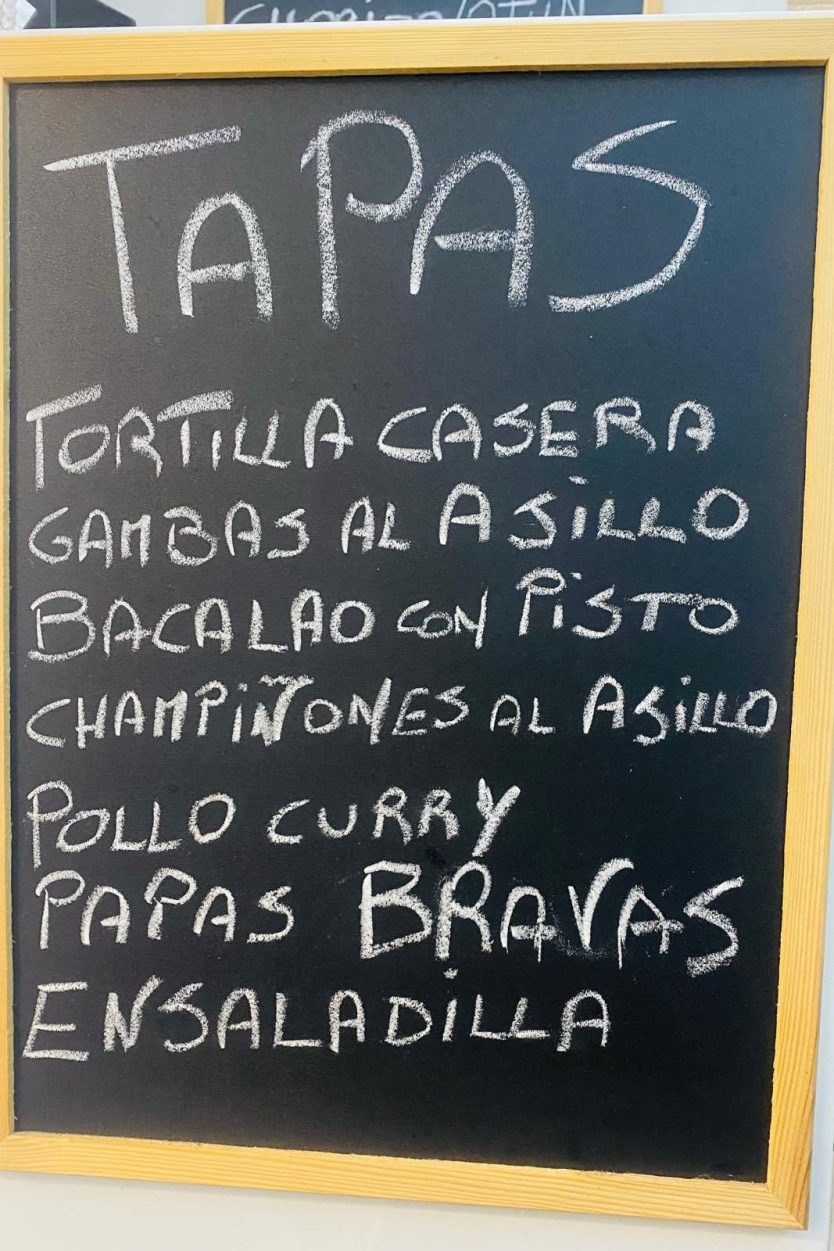 TAPAS
TORTILLA CASERA
GAMBAS AL AJILLO
BACALAO CON PISTO
CHAMPIÑONES AL AJILLO
POLLO CURRY
PAPAS BRAVAS
ENSALADILLA